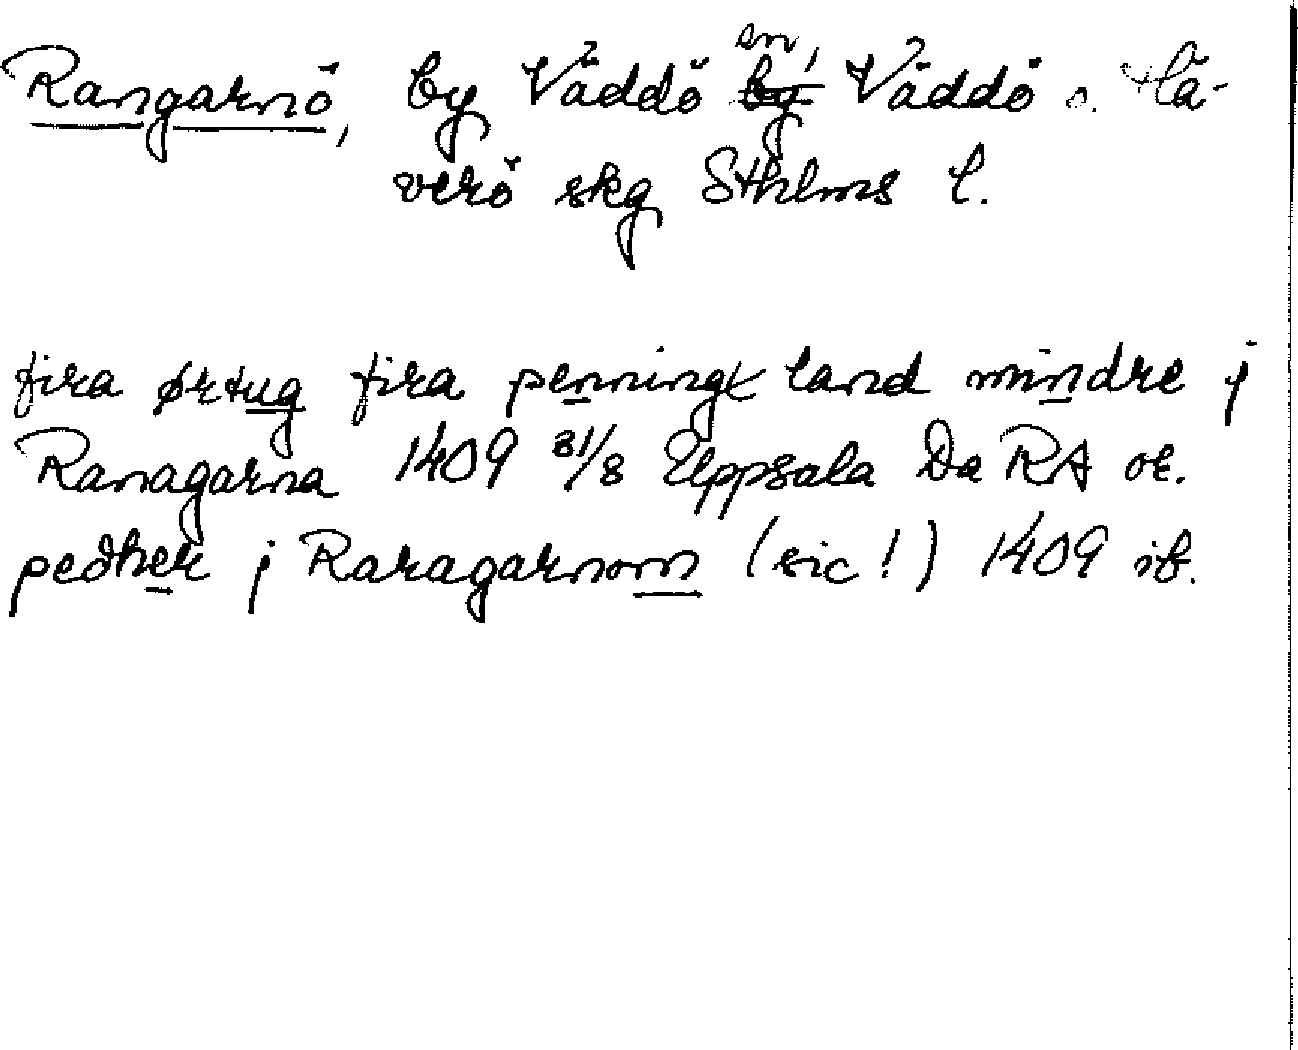 Rangarnö, by Väddö sn, Väddö o. Hä-
verö skg Sthlms l.
fira ørtug fira penninge land mindre j
Ranagarna 1409 31/8 Uppsala Da RA or.
pedher j Raragarnom (sic!) 1409 ib.